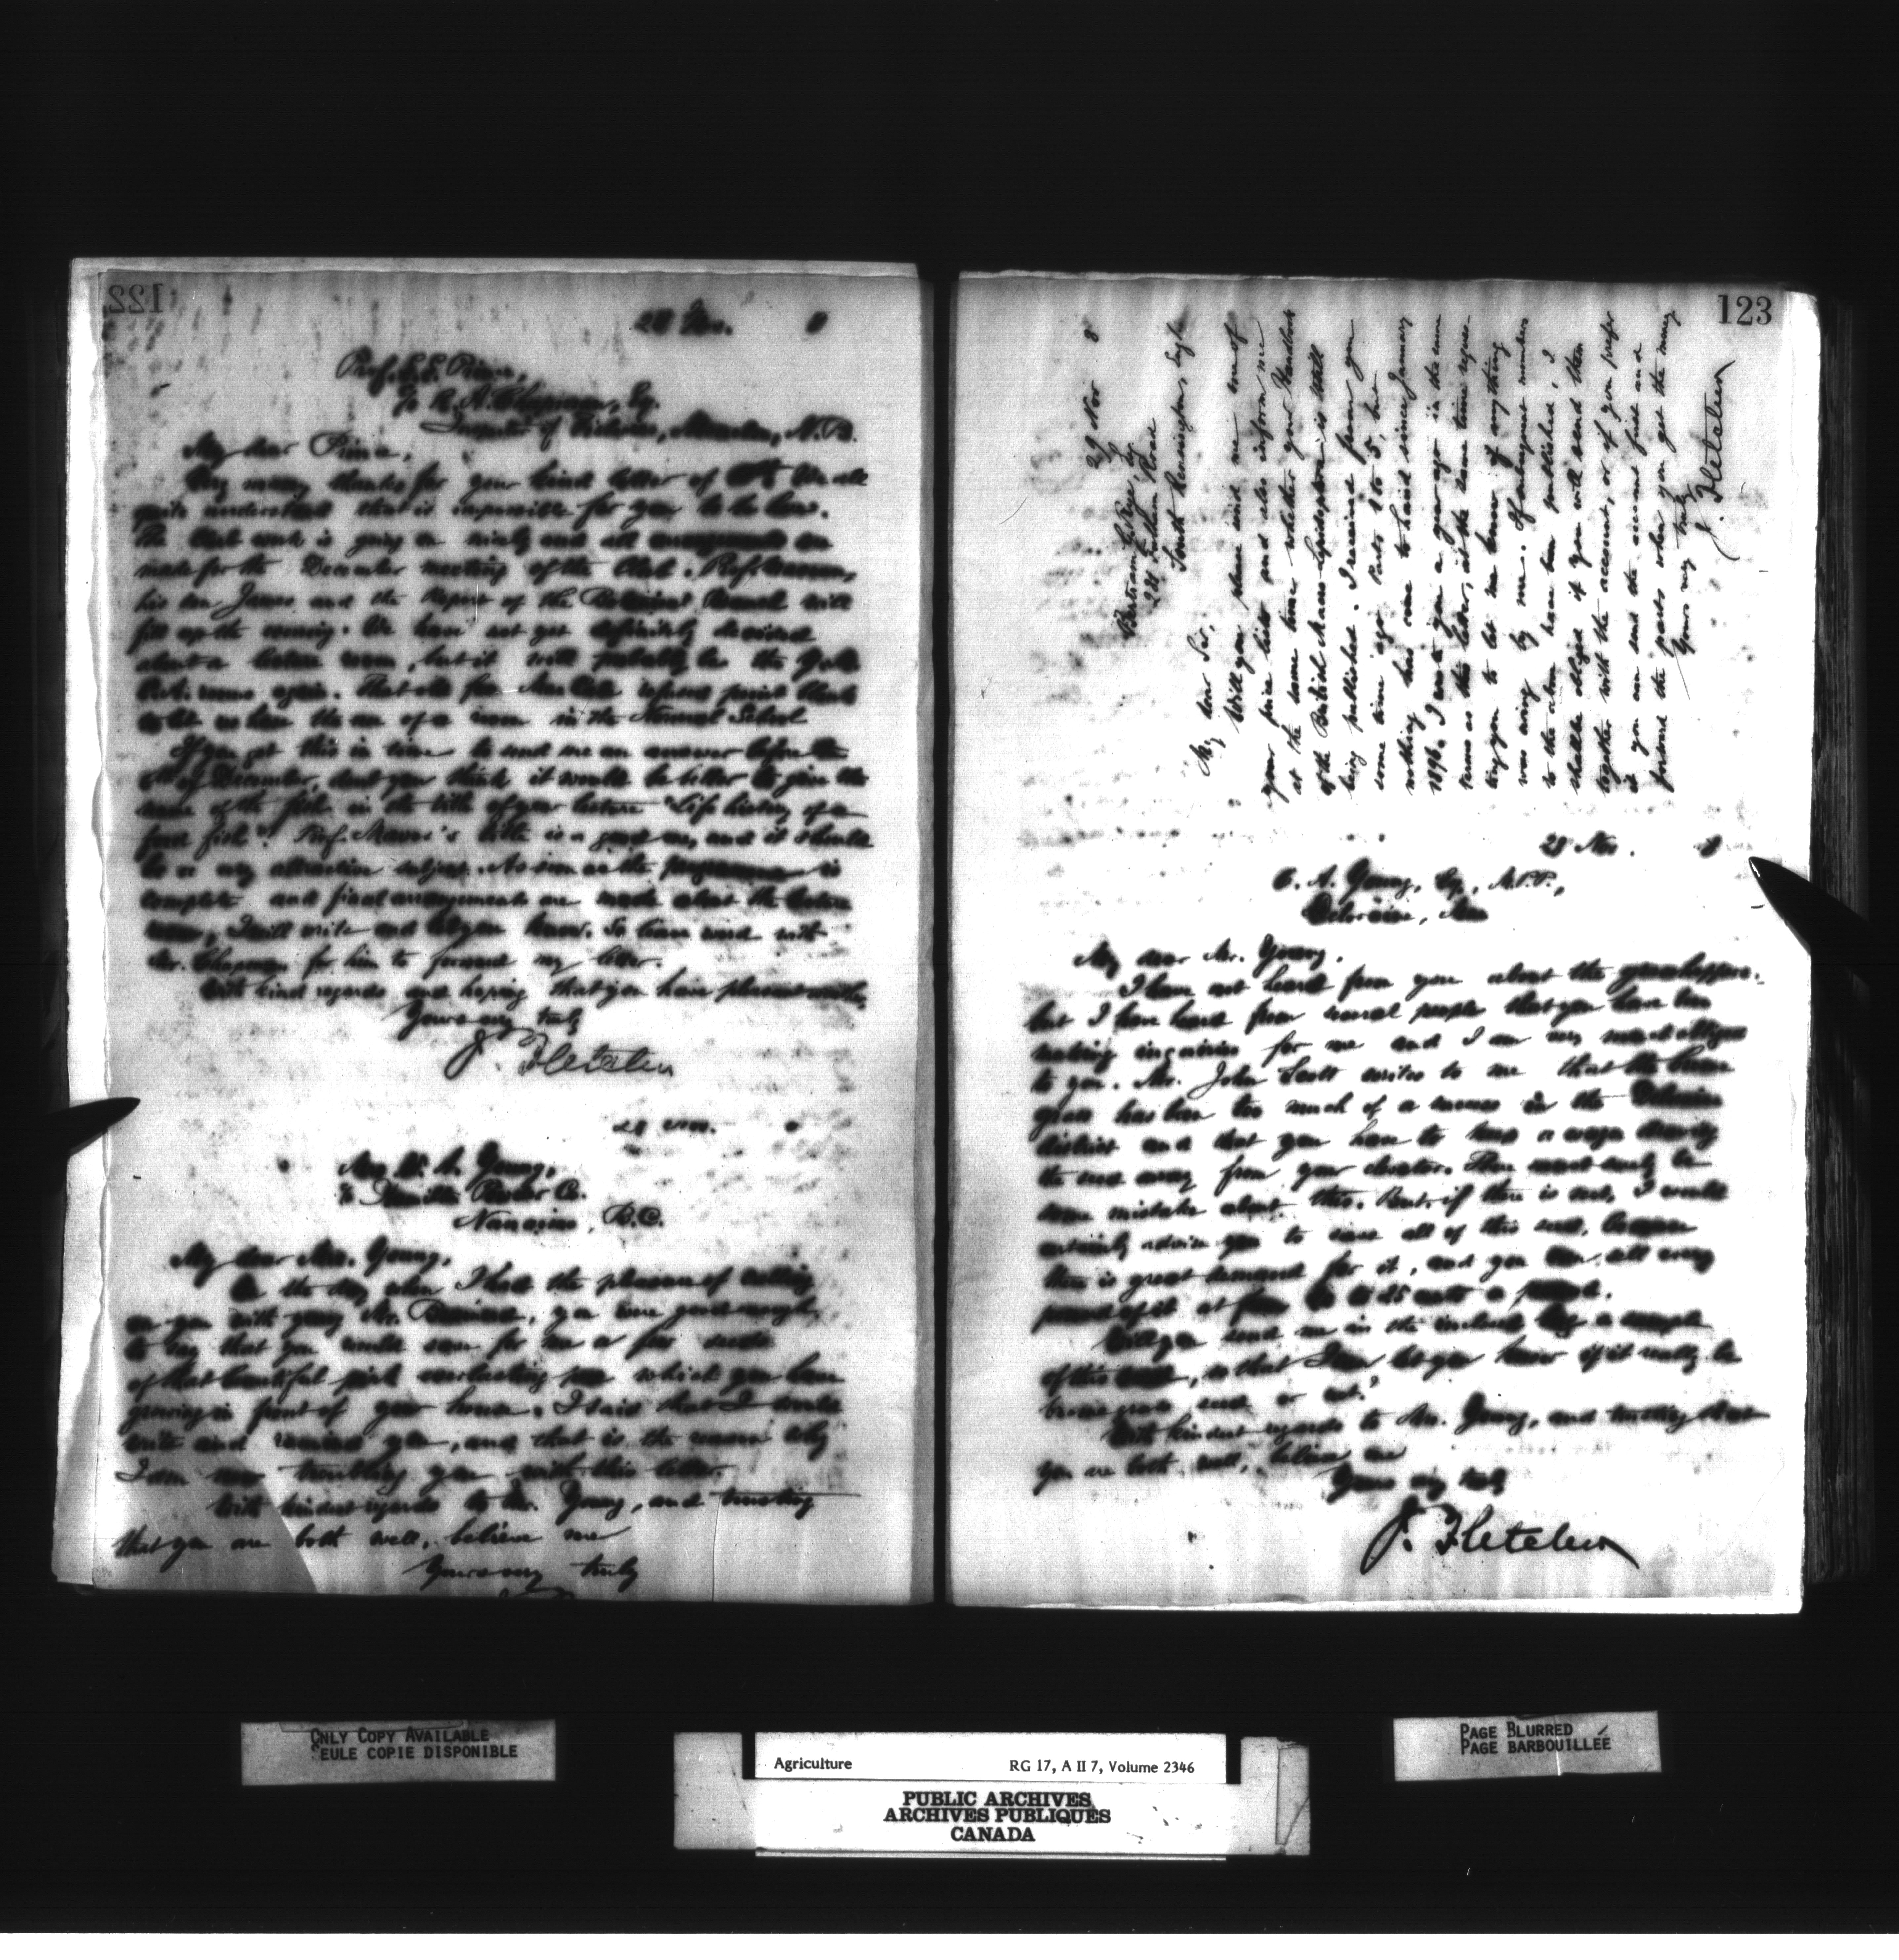 122
28 Nov. 8
Prof. E. E. Prince,
R. A. Chapman, Esq.
Inspector of Fisheries, Moncton, N.B.
My dear Prince,
Very many thanks for your kind letter of We all
quite understand that it is impossible for you to be here.
The Club work is going on nicely and all
made for the December meeting of the Club. Prof.
his son James and the Report of the Botanical Branch will
fill up the evening. We have not yet definitely decided
about a lecture room, but it will probably be the
rooms again. That refused point blank
to let us have the use of a room in the Normal School
If you get this in time to send me an answer before the
of December, don't you think it would be better to give the
name of the fish in the title of your lecture "Life history of a
food fish"? Prof. 's title is a good one, and it should
be a very attractive subject. As soon as the programme is
complete and final arrangements are made about the lecture
room, I will write and let you know. So leave word with
Mr. Chapman for him to forward my letter.
With kind regards and hoping that you have pleasant
Yours very truly
J. Fletcher
28 Nov. 8
Mrs W. A. Young,
Hamilton Powder Co.
Nanaimo, B.C.
My dear Mrs. Young,
On the day when I had the pleasure of calling
on you with young Mr. you were good enough
to say that you would save for me a few seeds
of that beautiful pink everlasting pea which you have
growing in front of your house. I said that I would
write and remind you, and that is the reason why
I am now troubling you with this letter.
With kindest regards to Mr. Young, and trusting
that you are both well, believe me
Yours very truly
123
29 Nov 8
Bertram Esq
Road
South Kensington, Engl.
My dear Sir,
Will you please send me one of
your price lists and also inform me
at the same time whether your Handbook
of the British Macro-lepidoptera is still
being published. I received from you
some time ago Parts 1 to 5, but
nothing has come to hand since January
1896. I wrote to you a year ago in the same
terms as this letter, at the same time reques-
ting you to let me know if anything
was owing by me. If subsequent numbers
to the above have been published, I
shall be obliged if you will send them
together with the account, or if you prefer
it you can send the account first and
forward the parts when you get the money
Yours very truly
J. Fletcher
28 Nov. 8
C. A. Young, Esq., M.P.P.,
Deloraine, Man
My dear Mr. Young,
I have not heard from you about the grasshoppers.
but I have heard from several people that you have been
making inquiries for me and I am very much obliged
to you. Mr. John Scott writes to me that the brome
grass has been too much of a success in the Deloraine
district and that you have to keep a wagon drawing
the seed away from your elevator. There must surely be
some mistake about this. But, if there is not, I would
certainly advise you to save all of this seed, because
there is great demand for it, and you can sell every
pound of it at from to 25 cents a pound.
Will you send me in the inclosed bag a sample
of this seed, so that I can let you know if it really be
brome grass seed or not?
With kindest regards to Mrs. Young, and trusting that
you are both well, believe me
Yours very truly
J. Fletcher
ONLY COPY AVAILABLE
SEULE COPIE DISPONIBLE
Agriculture RG 17, A II 7, Volume 2346
PUBLIC ARCHIVES
ARCHIVES PUBLIQUES
CANADA
PAGE BLURRED
PAGE BARBOUILLÉE